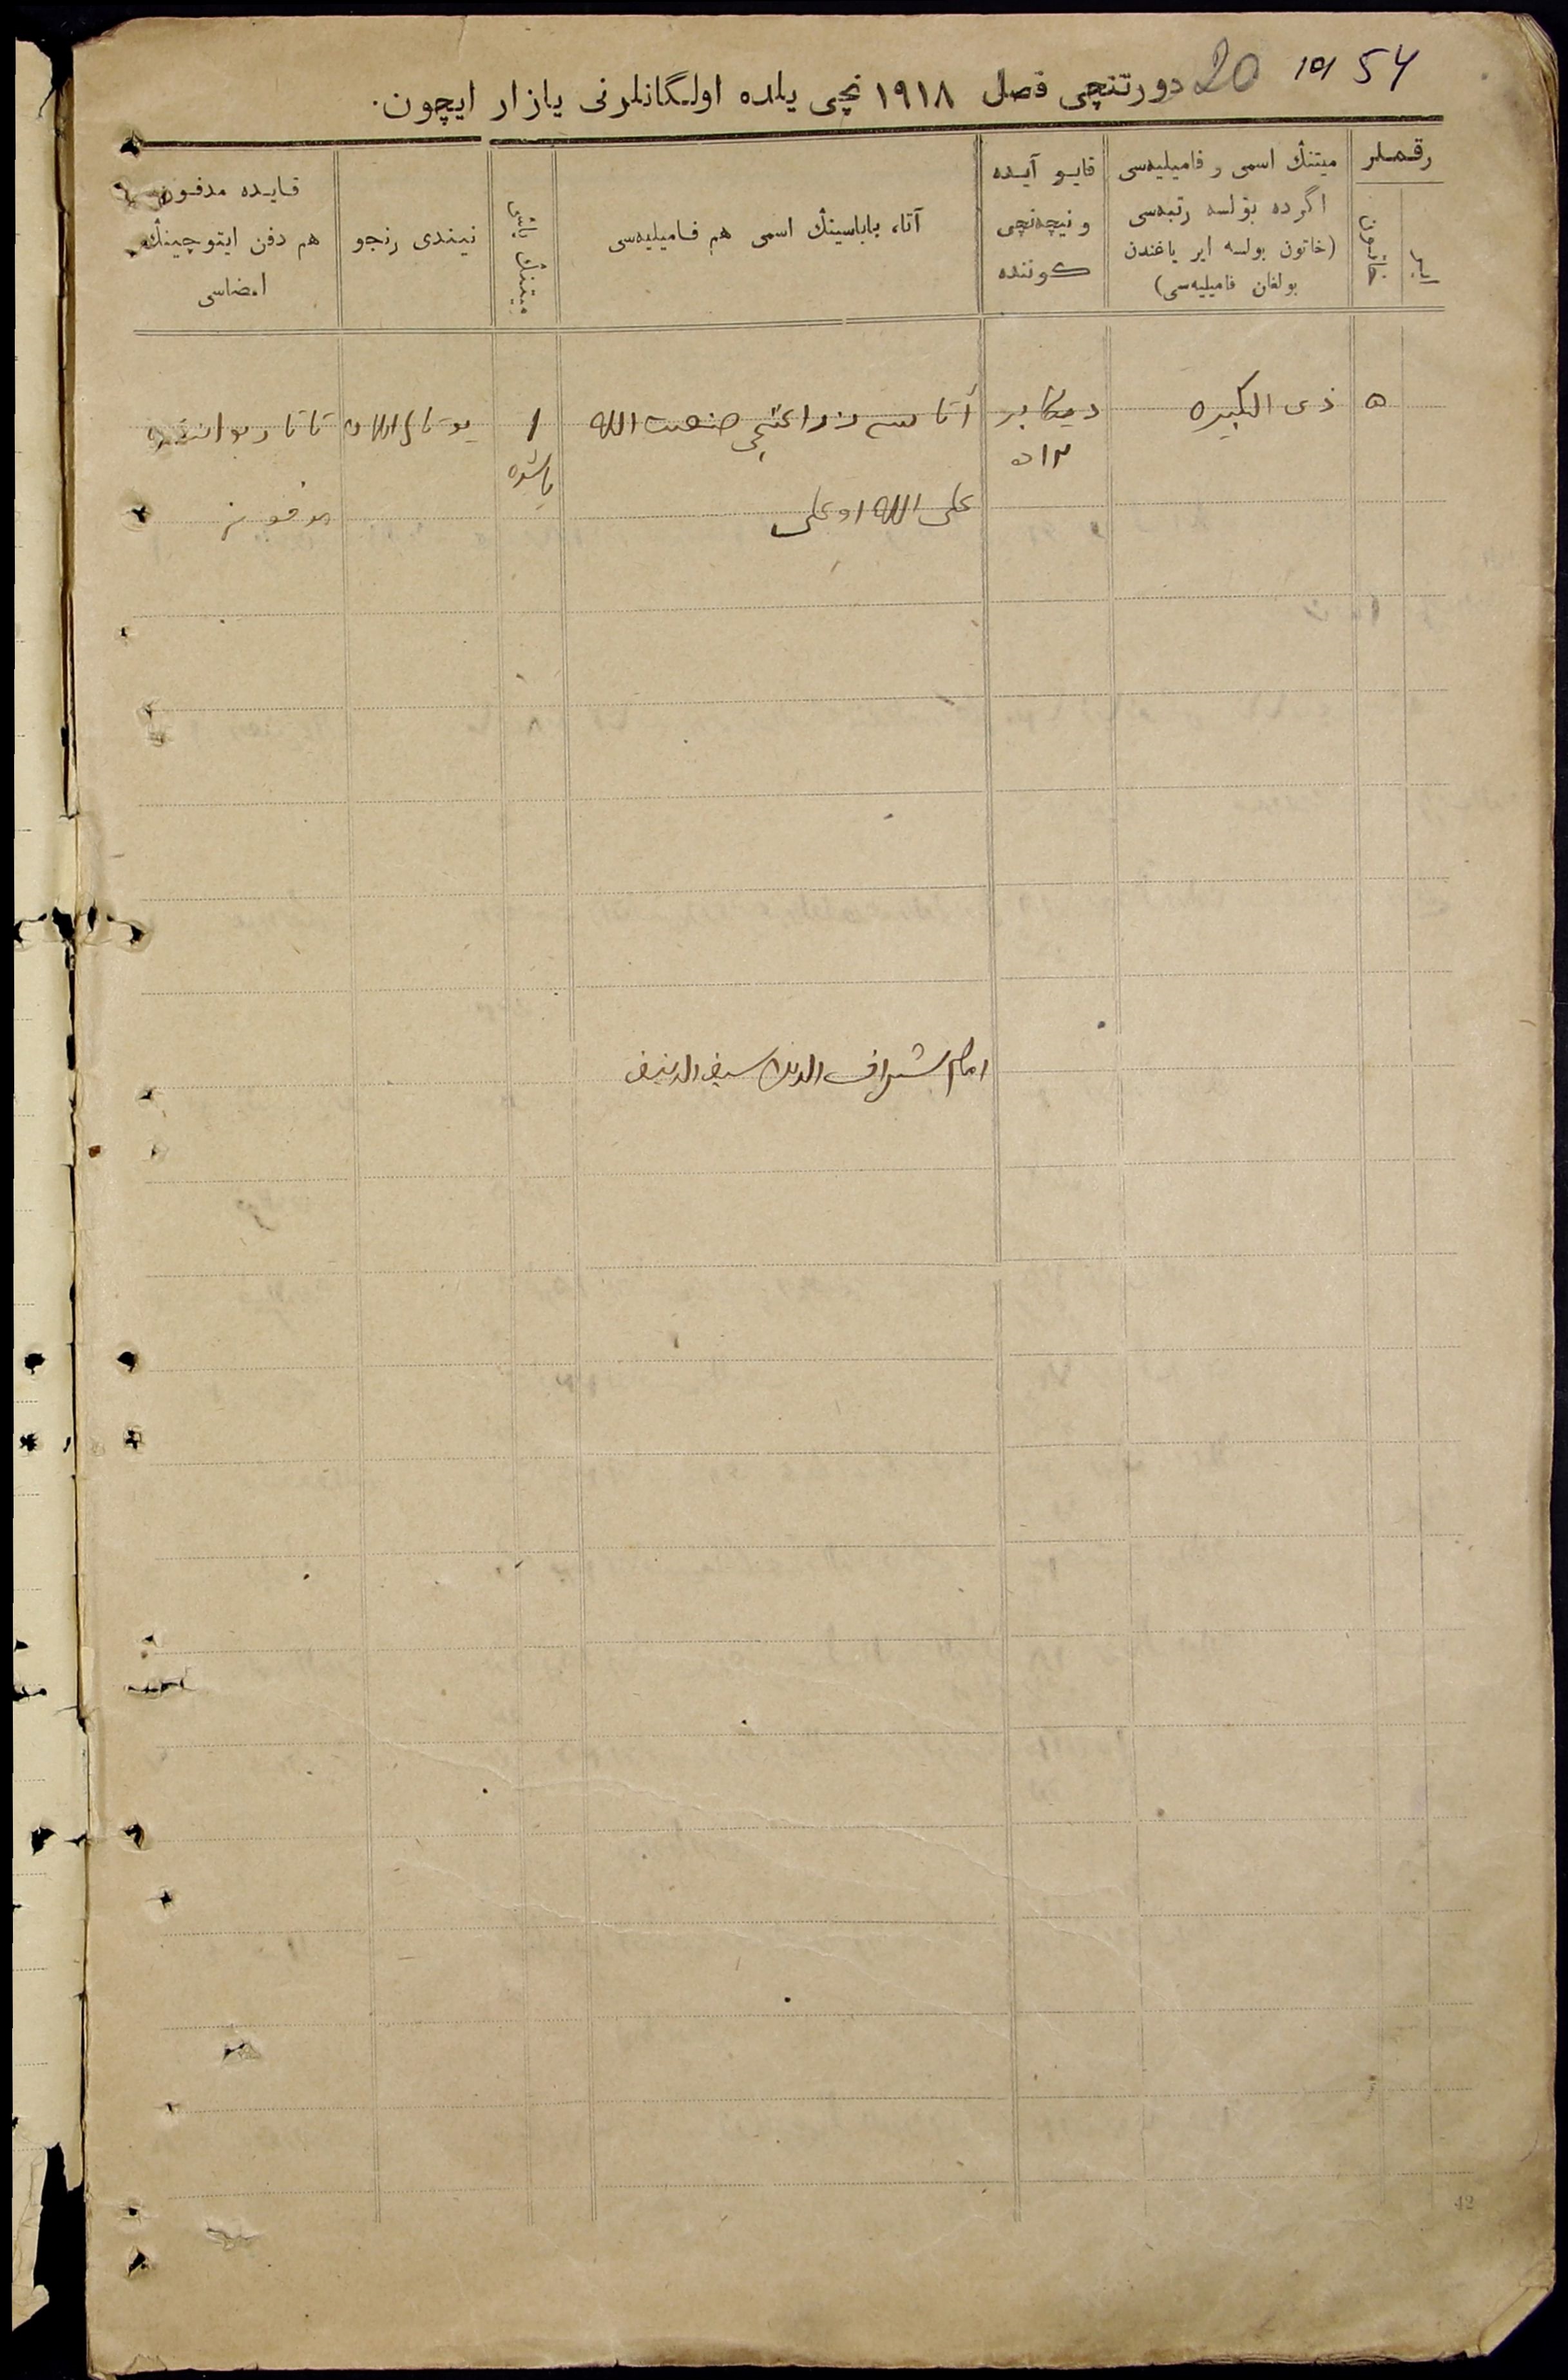 20 101 54
دورتنچی فصل ١٩١٨ نچی یلده اولگانلرنی یازار ایچون.
رقملر
ایر
خاتون
میتنڭ اسمی و فامیلیه‌سی
اگرده بولسه رتبه‌سی
(خاتون بولسه ایر یاغندن
بولغان فامیلیه‌سی)
قایو آیده
و نیچه‌نچی
کوننده
آتا، باباسینڭ اسمی هم فامیلیه‌سی
میتنڭ یاشی
نیندی رنجو
قایده مدفون
هم دفن ایتوچینڭ
امضاسی
٥
ذی الکبیره
دیکابر
آتاسی زراعتچی
الله
١
یاشده
یوتالدان
تاتار
علی الله اوغلی
مدفون
امام شراف الدین سیف الدینف
42